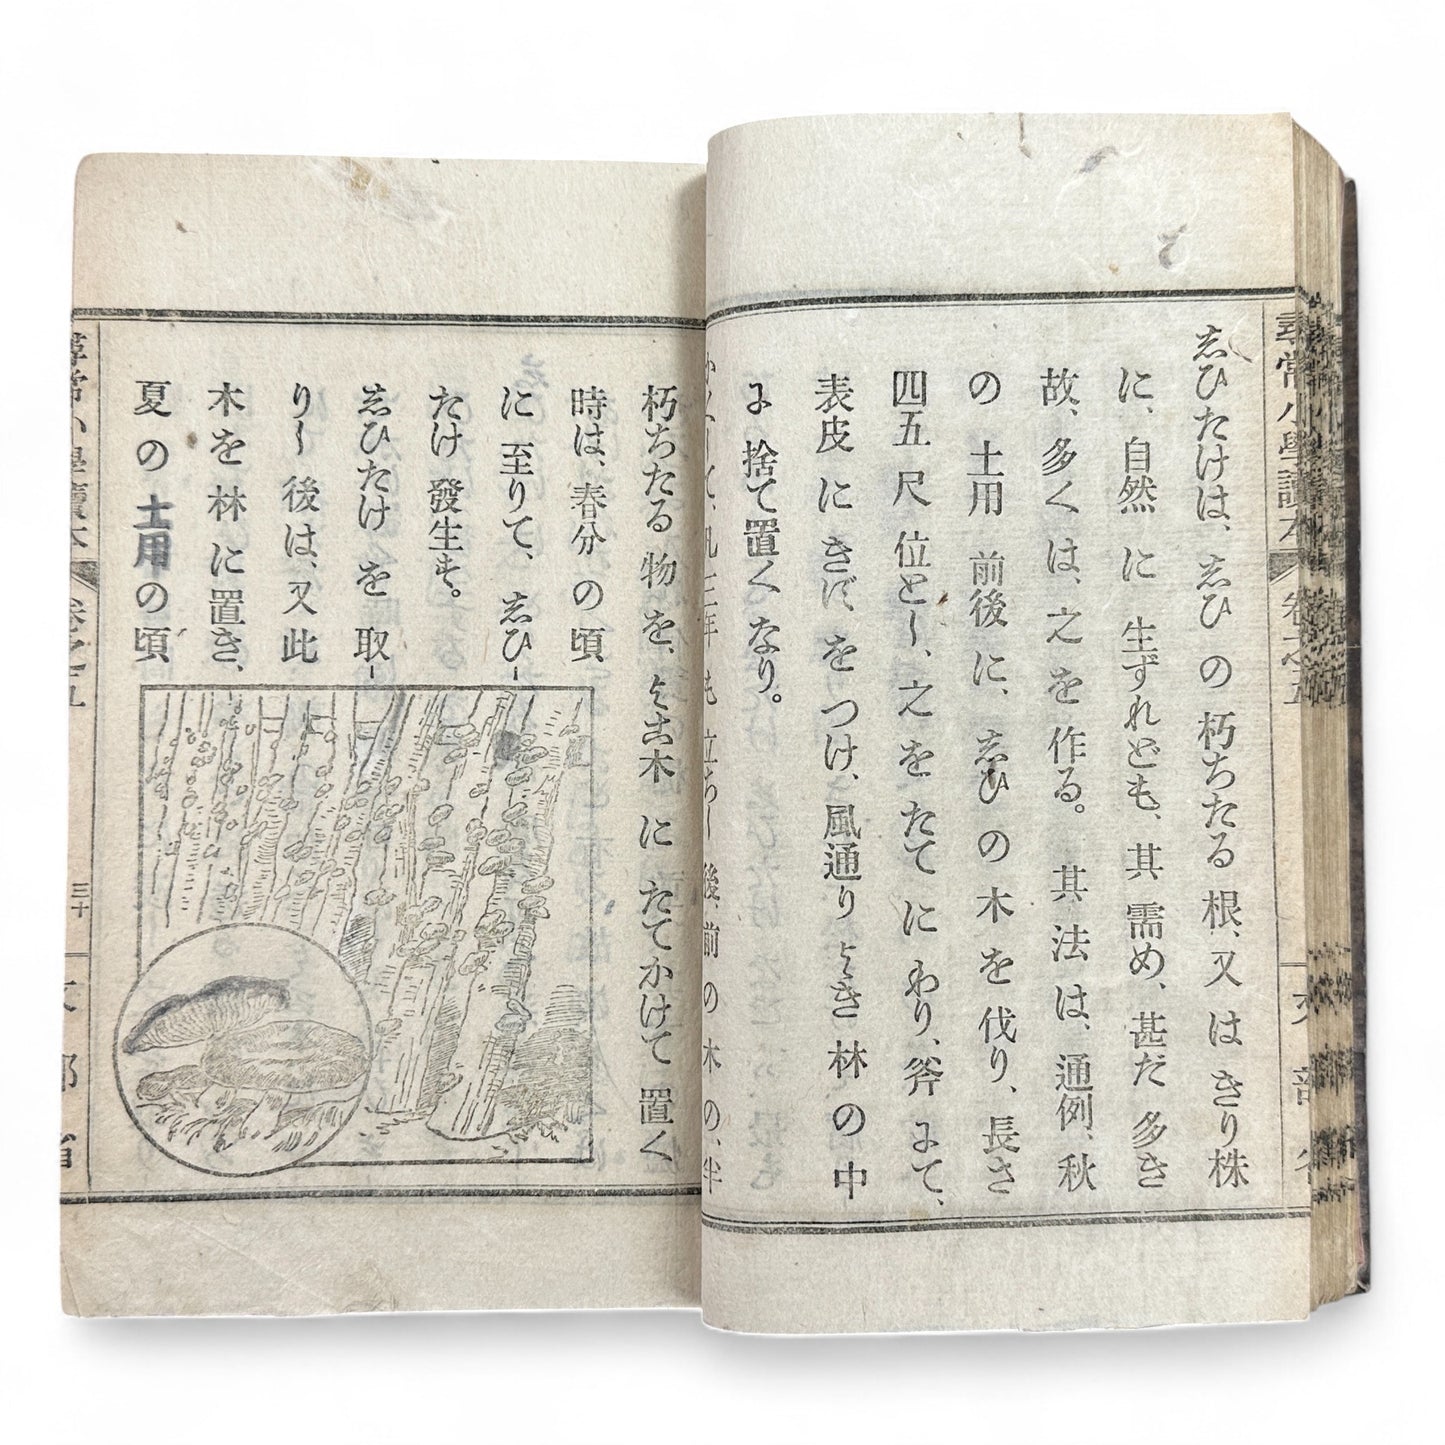 尋常小學讀本 卷之五 文部省
志ひたけは、志ひの朽ちたる根、又はきり株
に、自然に生ずれども、其需め、甚だ多き
故、多くは、之を作る。其法は、通例、秋
の土用前後に、志ひの木を伐り、長さ
四五尺位とし、之をたてにわり、斧にて、
表皮にきずをつけ、風通りよき林の中
に捨て置くなり。
かくして、凡三年も立ちし後、前の木の、半
朽ちたる物を、よこ木にたてかけて置く
時は、春分の頃
に至りて、志ひ-
たけ發生す。
志ひたけを取-
りし後は、又此
木を林に置き、
夏の土用の頃
尋常小學讀本 卷之五 三十 文部省